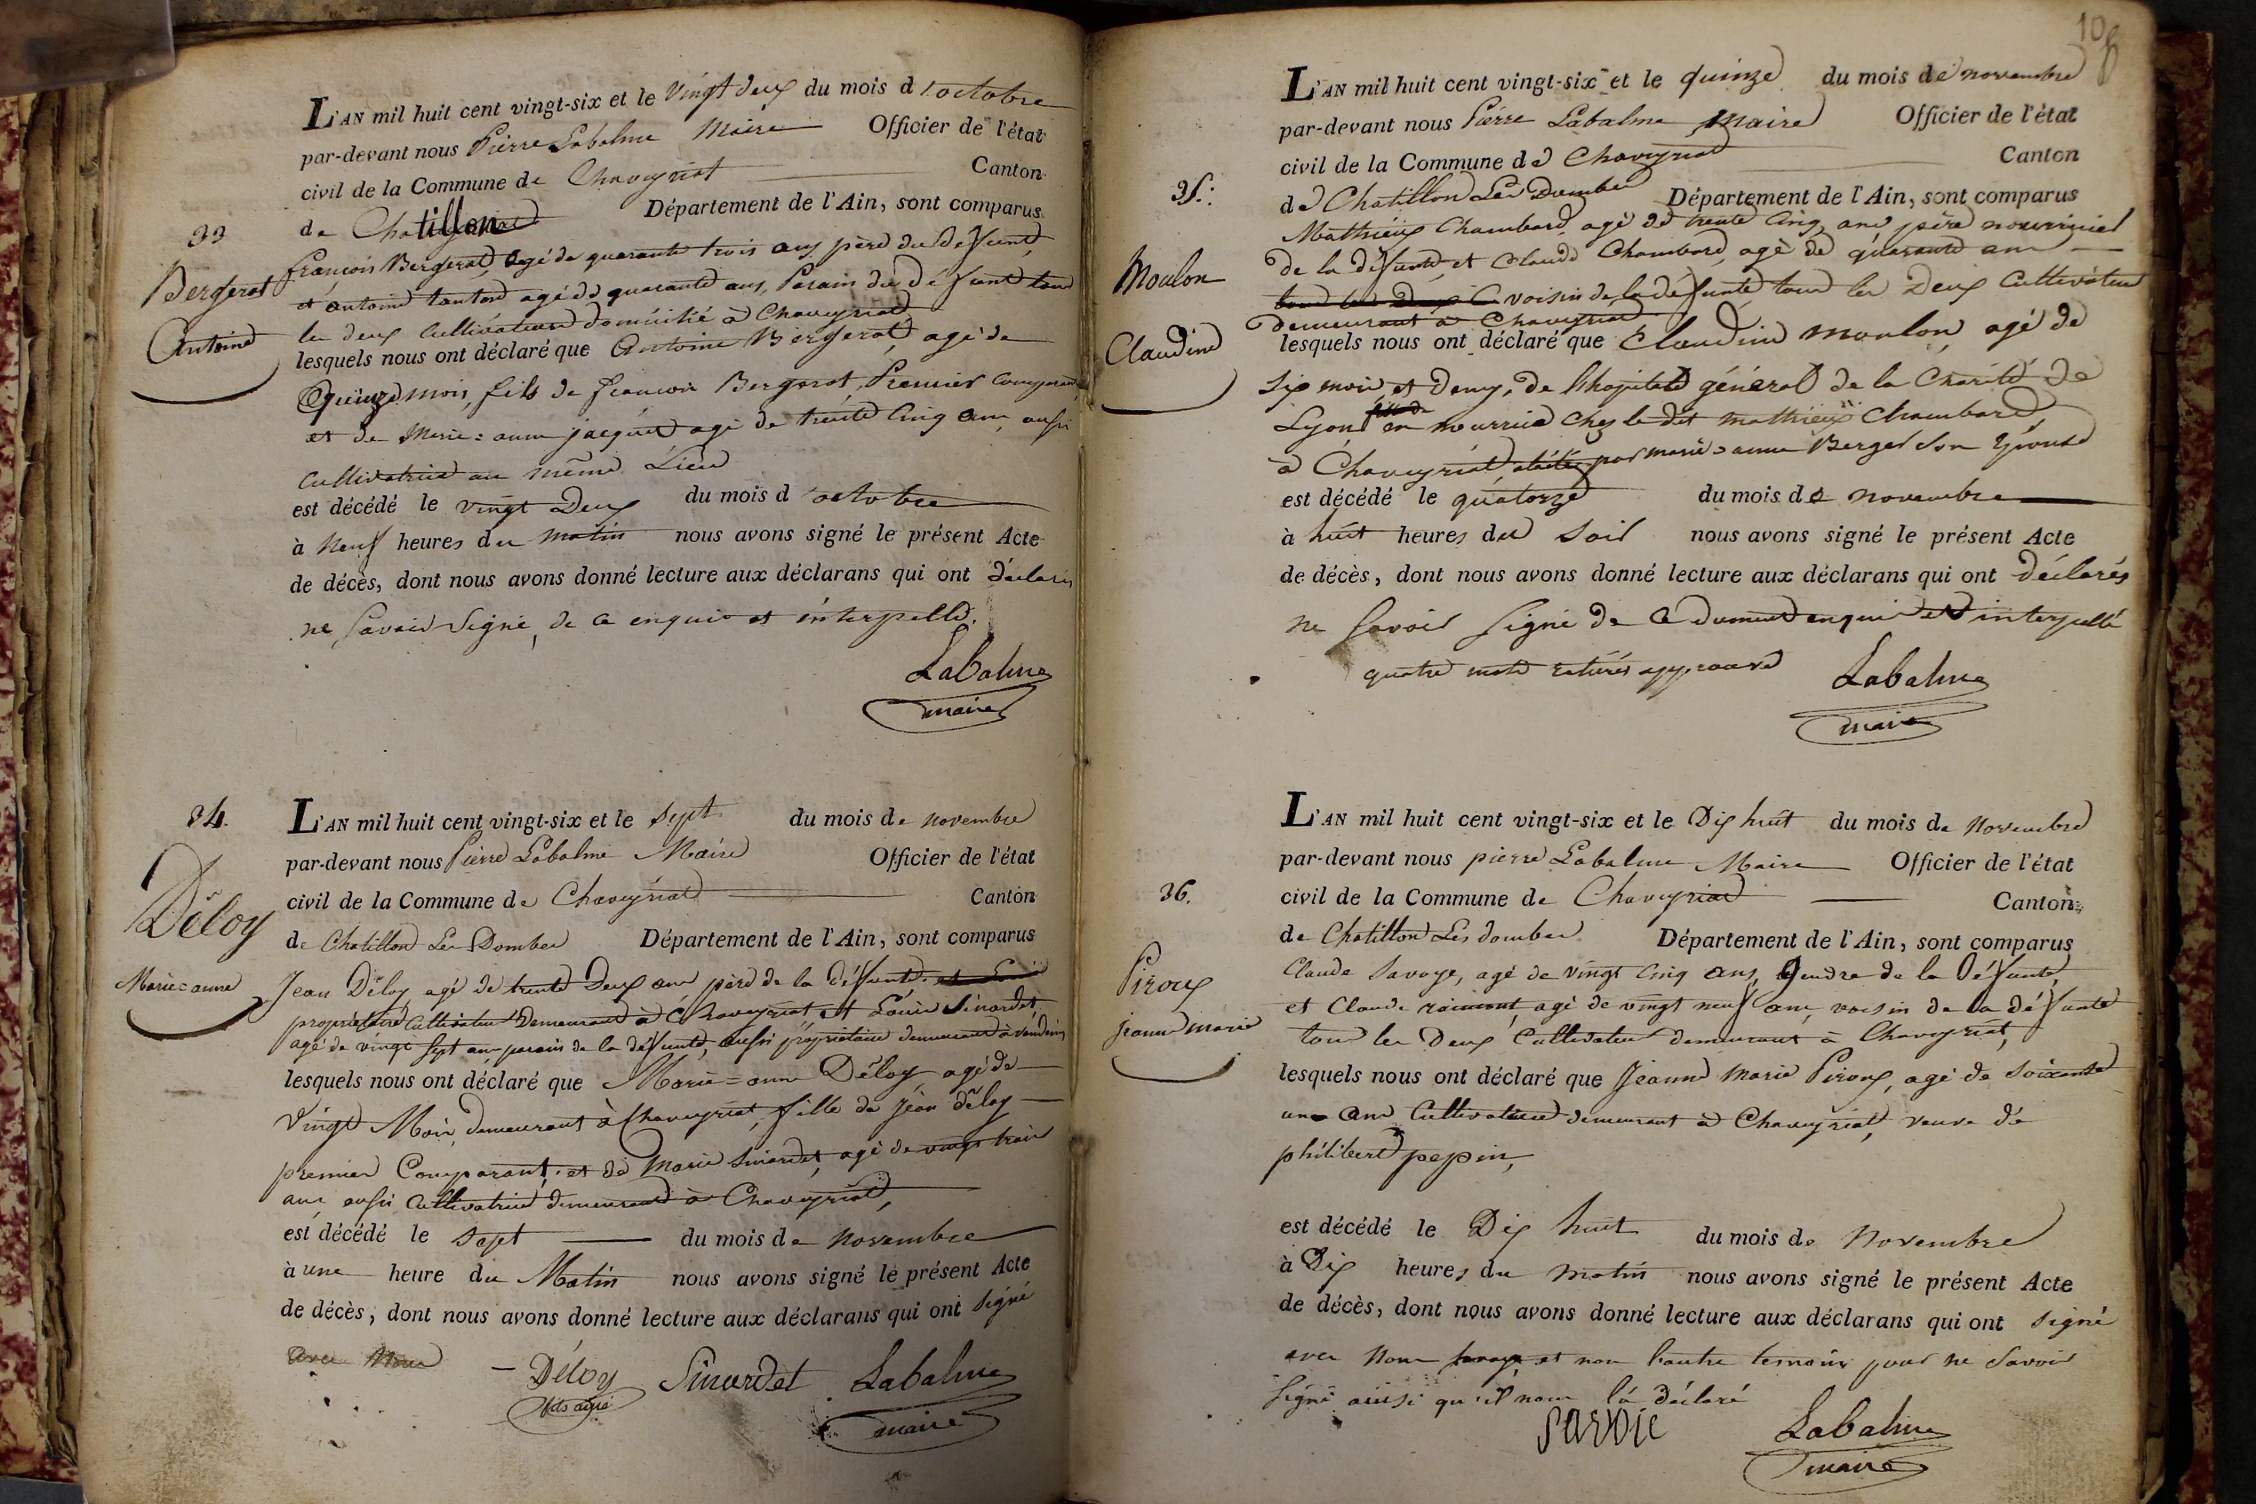 L'AN mil huit cent vingt-six et le vingt deux du mois d'octobre
par-devant nous Pierre Labalme Maire Officier de l'état
civil de la Commune de Chaveyriat Canton
de Chatillon Département de l'Ain, sont comparus
33
Bergerat
Antoine
françois Bergerat, agé de quarante trois ans, père du défunt,
et antoine tantond agé de quarante ans, Parain du défunt tous
les deux Cultivateurs domicilié à Chaveyriat
lesquels nous ont déclaré que Antoine Bergerat, agé de
Quinze mois, fils de françois Bergerat, Premier Comparant
et de Marie=anne jacquet agé de trente Cinq ans, aussi
Cultivatrice au même Lieu
est décédé le vingt Deux du mois d'octobre
à Neuf heures du matin nous avons signé le présent Acte
de décès, dont nous avons donné lecture aux déclarans qui ont déclarés
ne Savoir Signé, de ce enquis et interpellé.
Labalme
maire
34.
Déloy
Marie=anne
L'AN mil huit cent vingt-six et le sept du mois de novembre
par-devant nous Pierre Labalme Maire Officier de l'état
civil de la Commune de Chaveyriat Canton
de Chatillon Les Dombes Département de l'Ain, sont comparus
Jean Déloy, agé de trente Deux ans père de la défunte,
propriétaire Cultivateur Demeurant à Chaveyriat et Louis Sinardet,
agé de vingt sept ans parain de la défunte, aussi propriétaire demeurant à vandeins
lesquels nous ont déclaré que Marie=anne Déloy agé de
Vingt Mois, demeurant à Chaveyriat, fille de Jean déloy
premier Comparant, et de Marie Sinardet, agé de vingt trois
ans aussi Cultivatrice demeurant à Chaveyriat,
est décédé le sept du mois de novembre
à une heure du Matin nous avons signé le présent Acte
de décès, dont nous avons donné lecture aux déclarans qui ont signé
avec Nous
Déloy Sinardet Labalme
fils ainé maire
10
L'AN mil huit cent vingt-six et le quinze du mois de novembre
par-devant nous Pierre Labalme Maire Officier de l'état
civil de la Commune de Chaveyriat Canton
de Chatillon Les Dombes Département de l'Ain, sont comparus
35.
Moulon
Claudine
Mathieux Chambard, agé de trente Cinq ans père nourricier
de la défunte et Claude Chambard, agé de quarante ans
tous les Deux voisin de la défunte tous les Deux Cultivateur
demeurant à Chaveyriat
lesquels nous ont déclaré que Claudine Moulon, agé de
Six mois et demy, de Lhopital général de la Charité de
Lyon en nourrice chez le dit mathieux Chambard,
à Chaveyriat, alaitée par marie=anne Berger Son Epouse
est décédé le quatorze du mois de novembre
à huit heures du Soir nous avons signé le présent Acte
de décès, dont nous avons donné lecture aux déclarans qui ont déclarés
ne Savoir Signé de ce dument enquis et interpellé
quatre mots raturés approuvé
Labalme
maire
36.
Piroux
jeanne marie
L'AN mil huit cent vingt-six et le Dix huit du mois de Novembre
par-devant nous pierre Labalme Maire Officier de l'état
civil de la Commune de Chaveyriat Canton
de Chatillon Les dombes Département de l'Ain, sont comparus
Claude Savoye, agé de vingt Cinq ans, Gendre de la Défunte,
et Claude raimont, agé de vingt neuf ans, voisin de la défunte
tous les Deux Cultivateur demeurant à Chaveyriat,
lesquels nous ont déclaré que Jeanne Marie Piroux, agé de Soixante
un ans Cultivatrice demeurant à Chaveyriat, veuve de
philibert pepin,
est décédé le Dix huit du mois de Novembre
à Dix heures du matin nous avons signé le présent Acte
de décès, dont nous avons donné lecture aux déclarans qui ont Signé
avec Nous Savoye, et non l'autre temoins pour ne Savoir
Signé ainsi qu'il nous la déclaré
savoie Labalme
maire